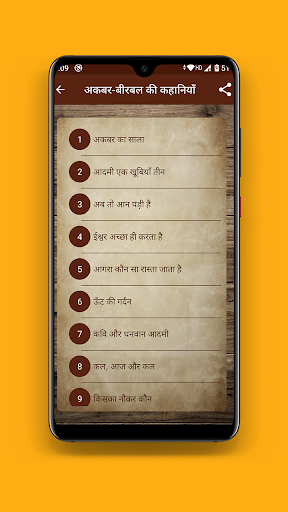 :09 HD 51
अकबर-बीरबल की कहानियाँ
1 अकबर का साला
2 आदमी एक खूबियाँ तीन
3 अब तो आन पड़ी है
4 ईश्वर अच्छा ही करता है
5 आगरा कौन सा रास्ता जाता है
6 ऊँट की गर्दन
7 कवि और धनवान आदमी
8 कल, आज और कल
9 किसका नौकर कौन